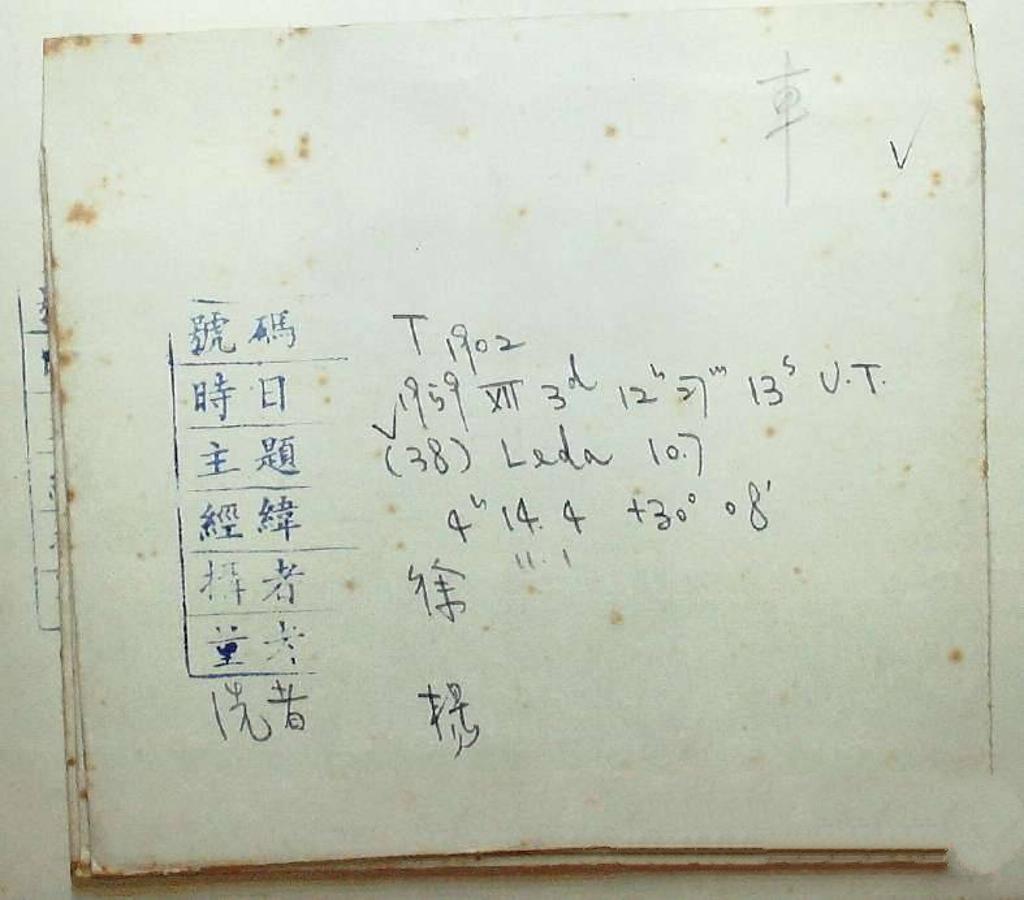 車
√
號碼 T 1902
時日 √1959 XII 3d 12h 27m 13s U.T.
主題 (38) Leda 10.7
經緯 4h 14.4 +30° 08'
11.1
攝者 徐
量者
洗者 楊